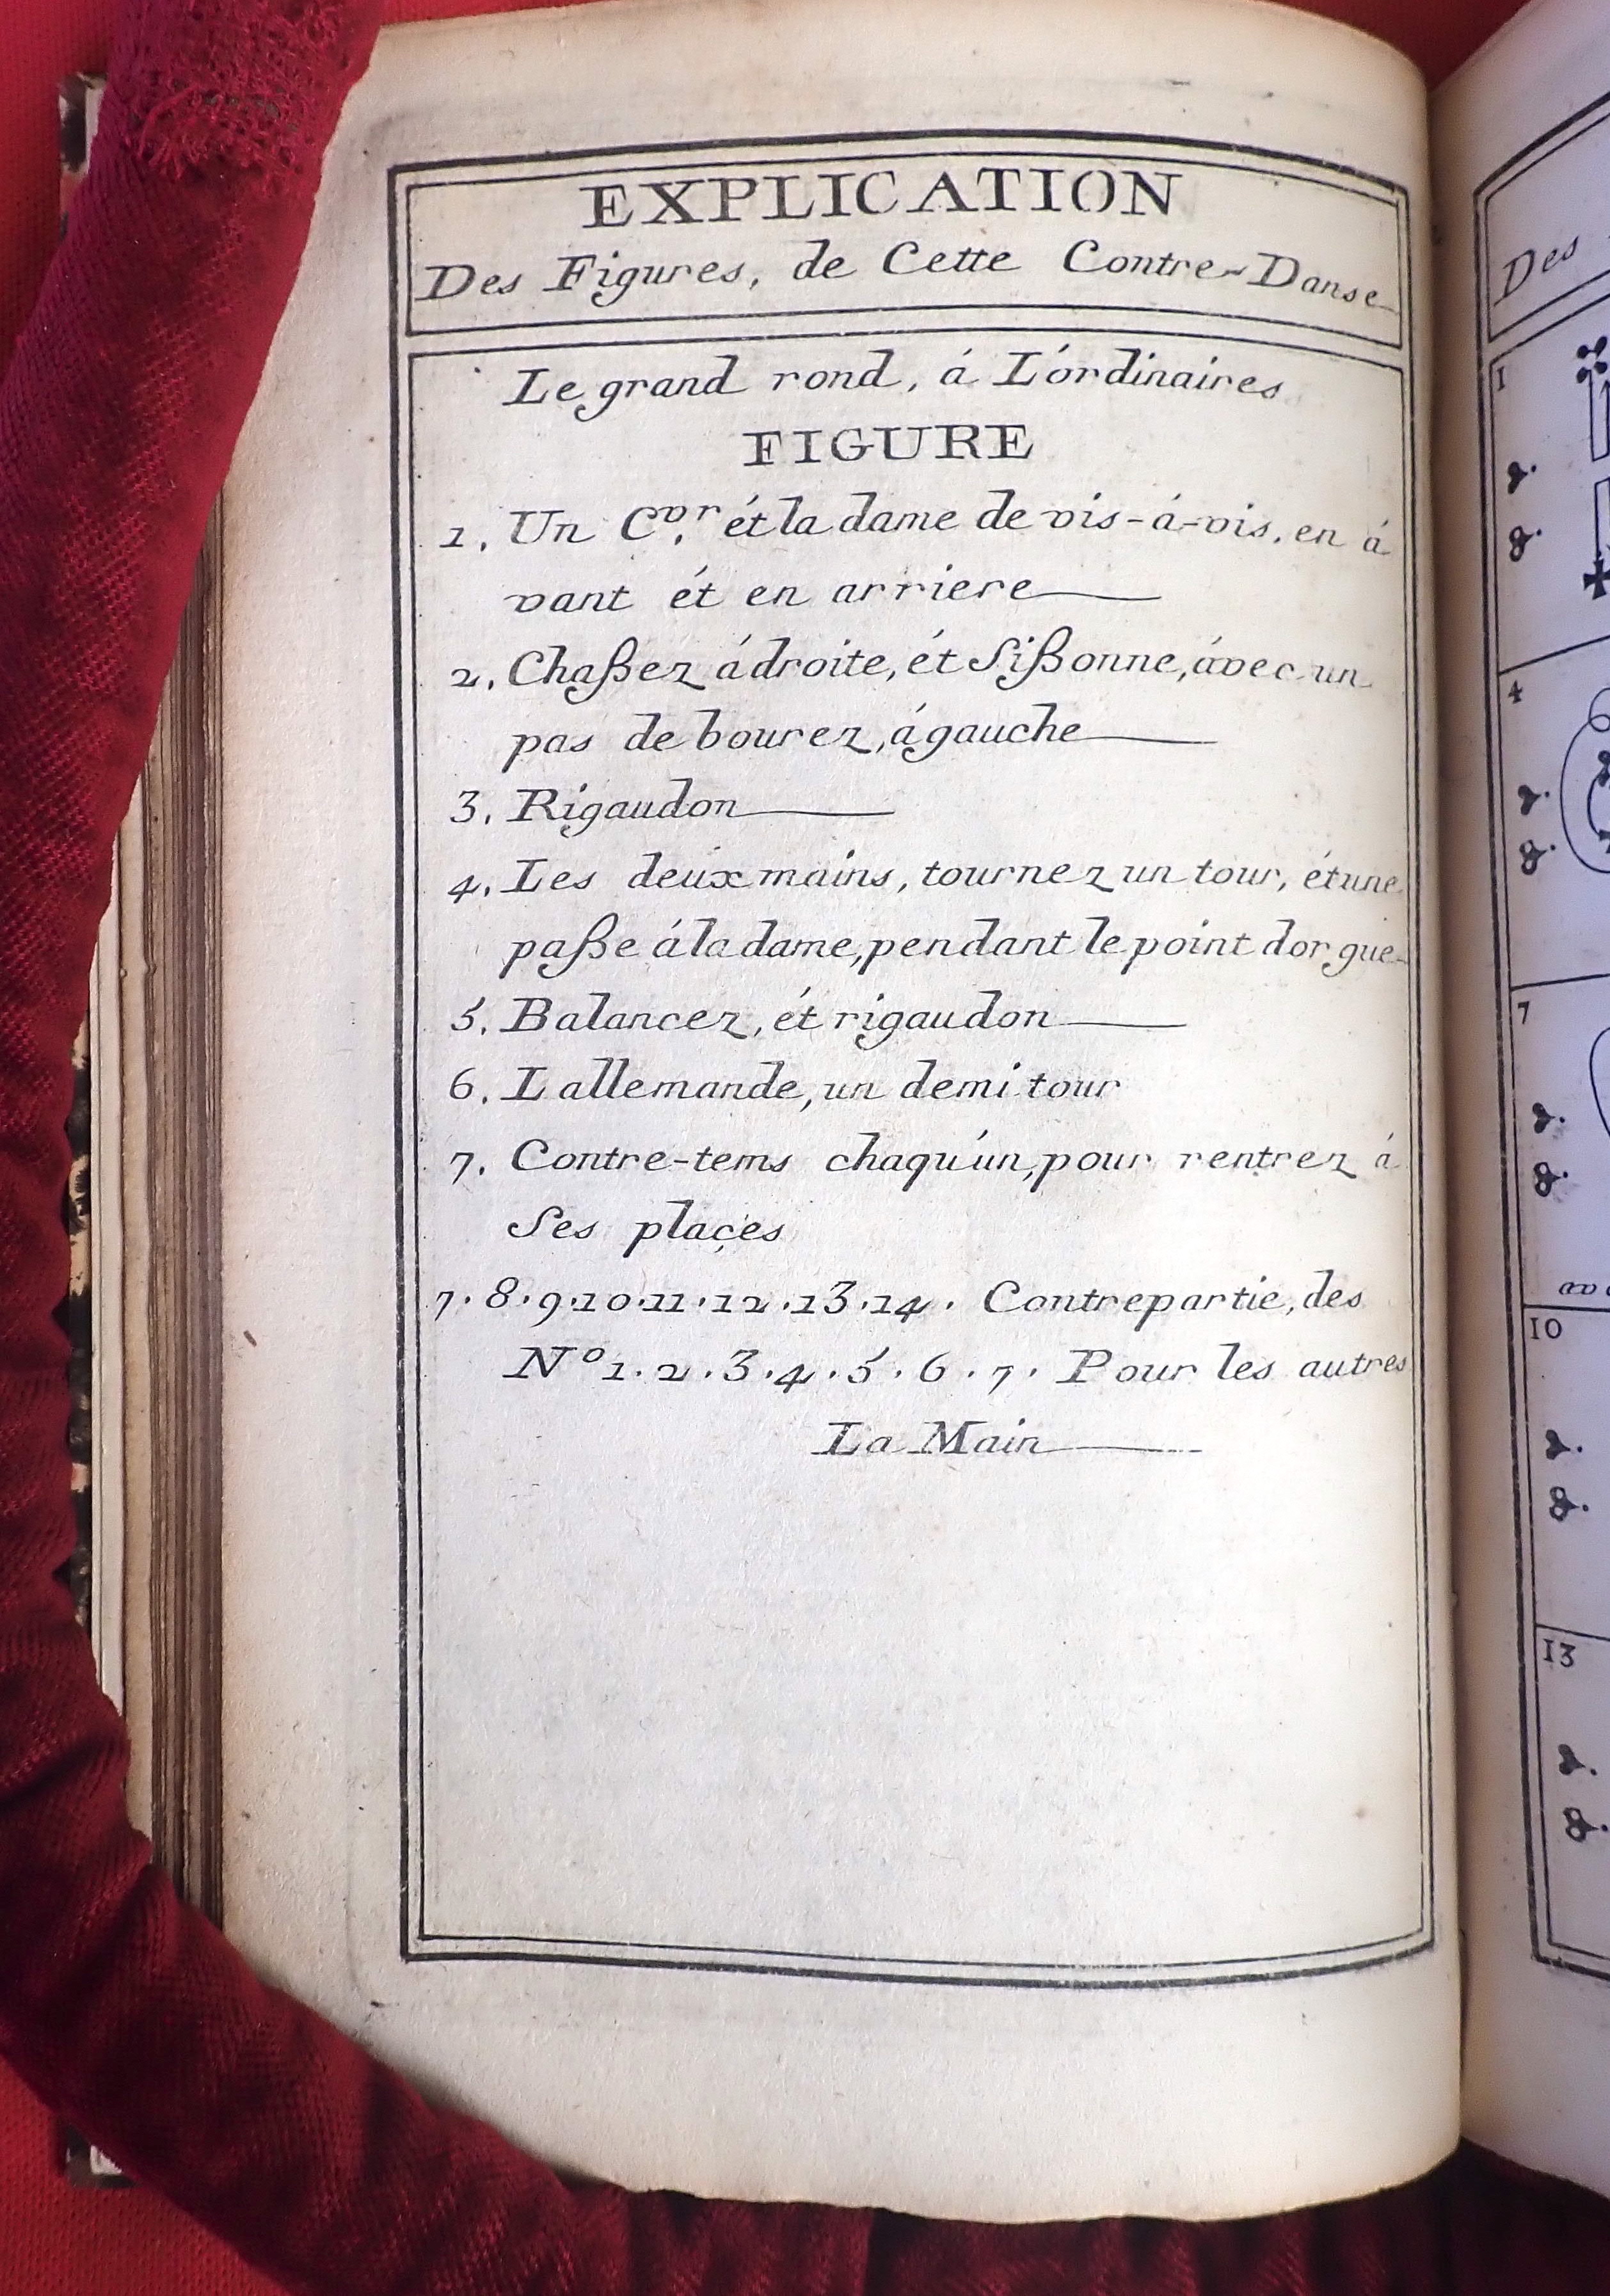 EXPLICATION
Des Figures, de Cette Contre-Danse
Le grand rond, á L'órdinaires
FIGURE
1. Un C.vr ét la dame de vis-á-vis, en á
vant ét en arriere
2. Chaßez á droite, ét Sißonne, ávec un
pas de bourez, á gauche
3. Rigaudon
4. Les deux mains, tournez un tour, ét une
paße á la dame, pendant le point dorgue
5. Balancez, ét rigaudon
6. Lallemande, un demi tour
7. Contre-tems chaqu'un, pour rentrez á
Ses plaçes
7.8.9.10.11.12.13.14. Contrepartie, des
No 1.2.3.4.5.6.7. Pour les autres
La Main
Des
1
4
7
10
13